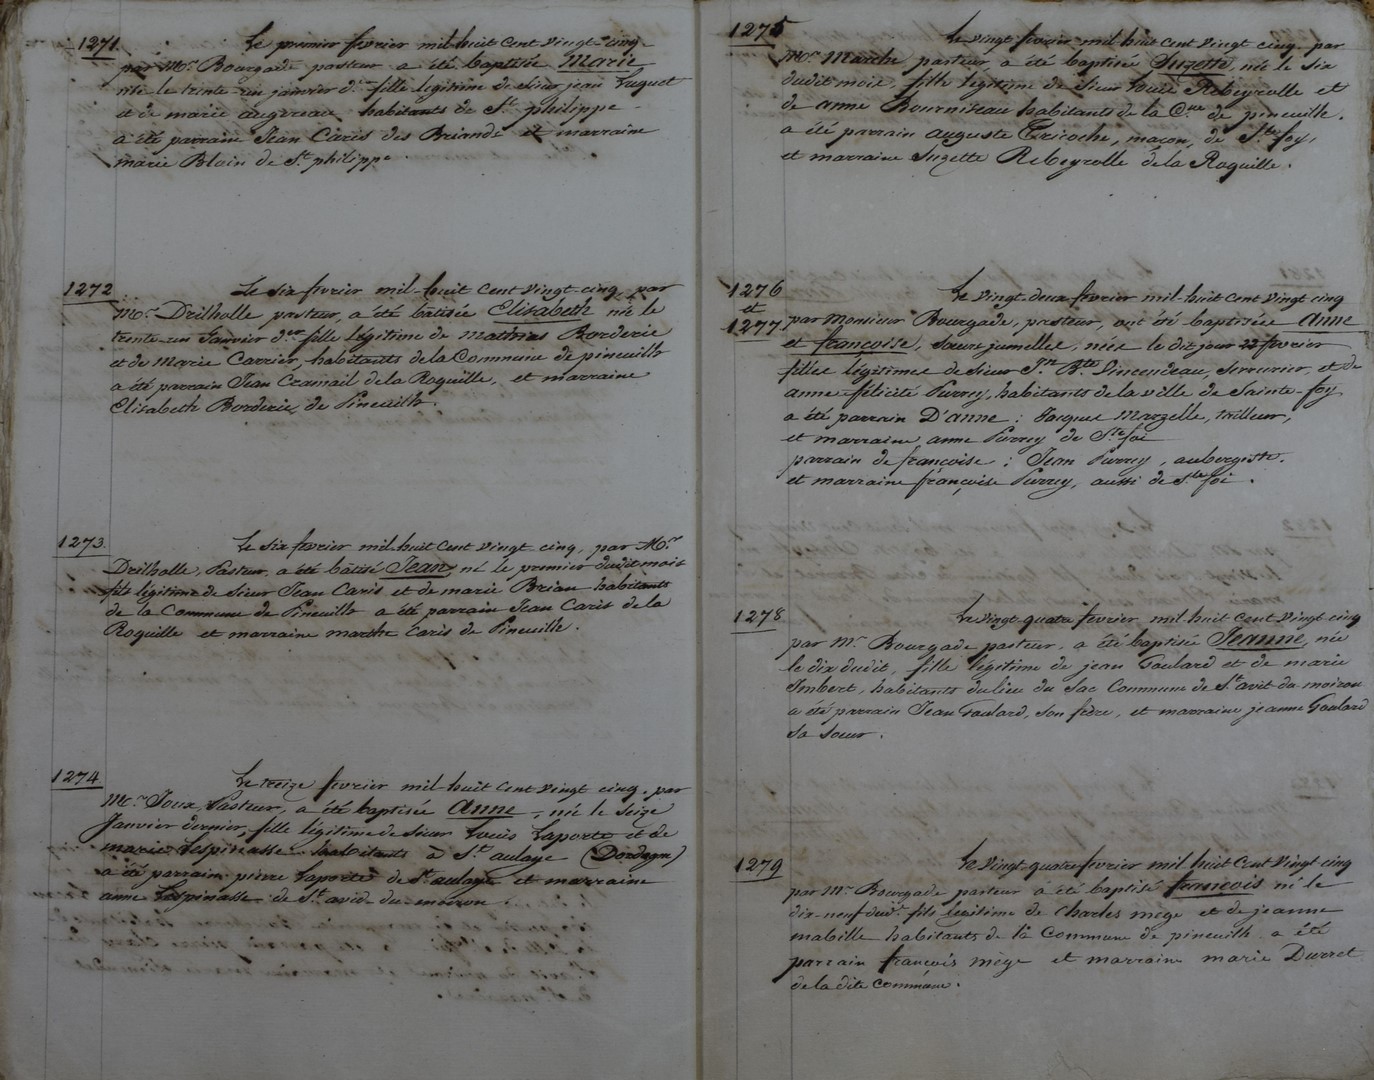 1271
Le premier fevrier mil-huit cent vingt-cinq
par Mr. Bourgade pasteur a été baptisée Marie
née le trente-un janvier dr. fille legitime de Sieur jean Fuguet
et de marie augereau habitants de St. philippe
a été parrain Jean Caris des Briands et marraine
marie Blain de St. philippe.
1272
Le six fevrier mil-huit cent vingt cinq, par
Mr. Drilholle pasteur, a été batisée Elisabeth née le
trente-un Janvier der. fille légitime de Mathias Borderie
et de Marie Carrier, habitants de la Commune de pineuilh
a été parrain Jean Cramail de la Roquille, et marraine
Elisabeth Borderie, de Pineuilh.
1273
Le six fevrier mil-huit cent vingt cinq, par Mr.
Drilholle, Pasteur, a été batisé Jean, né le premier dudit mois
fils légitime de Sieur Jean Caris et de marie Brian habitants
de la Commune de Pineuilh a été parrain Jean Caris de la
Roquille et marraine marthe Caris de Pineuilh.
1274
Le treize fevrier mil huit cent vingt cinq, par
Mr. Joux, Pasteur, a été baptisée Anne, née le Seize
Janvier dernier, fille légitime de Sieur Louis Laporte et de
marie Lespinasse habitants à St. aulaye (Dordogne)
a été parrain pierre Laporte de St aulaye et marraine
anne Lespinasse de St. avid-du-moiron.
1275
Le vingt fevrier mil huit cent vingt cinq par
Mr. Marche pasteur, a été baptisée Suzette, née le six
dudit mois, fille légitime de Sieur Louis Rebeyrolle et
de anne Bourniteau habitants de la Cne. de pineuille.
a été parrain auguste Fricoche, maçon, de Ste foy,
et marraine Suzette Rebeyrolle de la Roquille.
1276
et
1277
Le vingt-deux fevrier mil-huit cent vingt cinq
par Monsieur Bourgade, pasteur, ont été baptisées Anne
et françoise, Soeurs jumelles, nées le dit jour 22 fevrier
filles légitimes de Sieur Jn. Bte. Vincendeau, Serrurier, et de
anne félicité Purrey, habitants de la ville de Sainte-foy
a été parrain D'anne : Jacques Marzelle, tailleur,
et marraine anne Purrey de Ste foi
parrain de françoise : Jean Purrey, aubergiste.
et marraine françoise Purrey, aussi de Ste foi.
1278
Le vingt quatre fevrier mil huit cent vingt cinq
par Mr. Bourgade pasteur, a été baptisée Jeanne, née
le dix dudit, fille légitime de jean Goulard et de marie
Imbert, habitants du lieu du Sac Commune de St. avit du moiron
a été parrain Jean Goulard, Son frère, et marraine jeanne Goulard
Sa Soeur.
1279
Le vingt quatre fevrier mil huit cent vingt cinq
par Mr. Bourgade pasteur a été baptisé françois né le
dix-neuf dudt. fils legitime de Charles mege et de jeanne
mabille habitants de la Commune de pineuilh a été
parrain françois mege et marraine marie Durret
de la dite Commune.